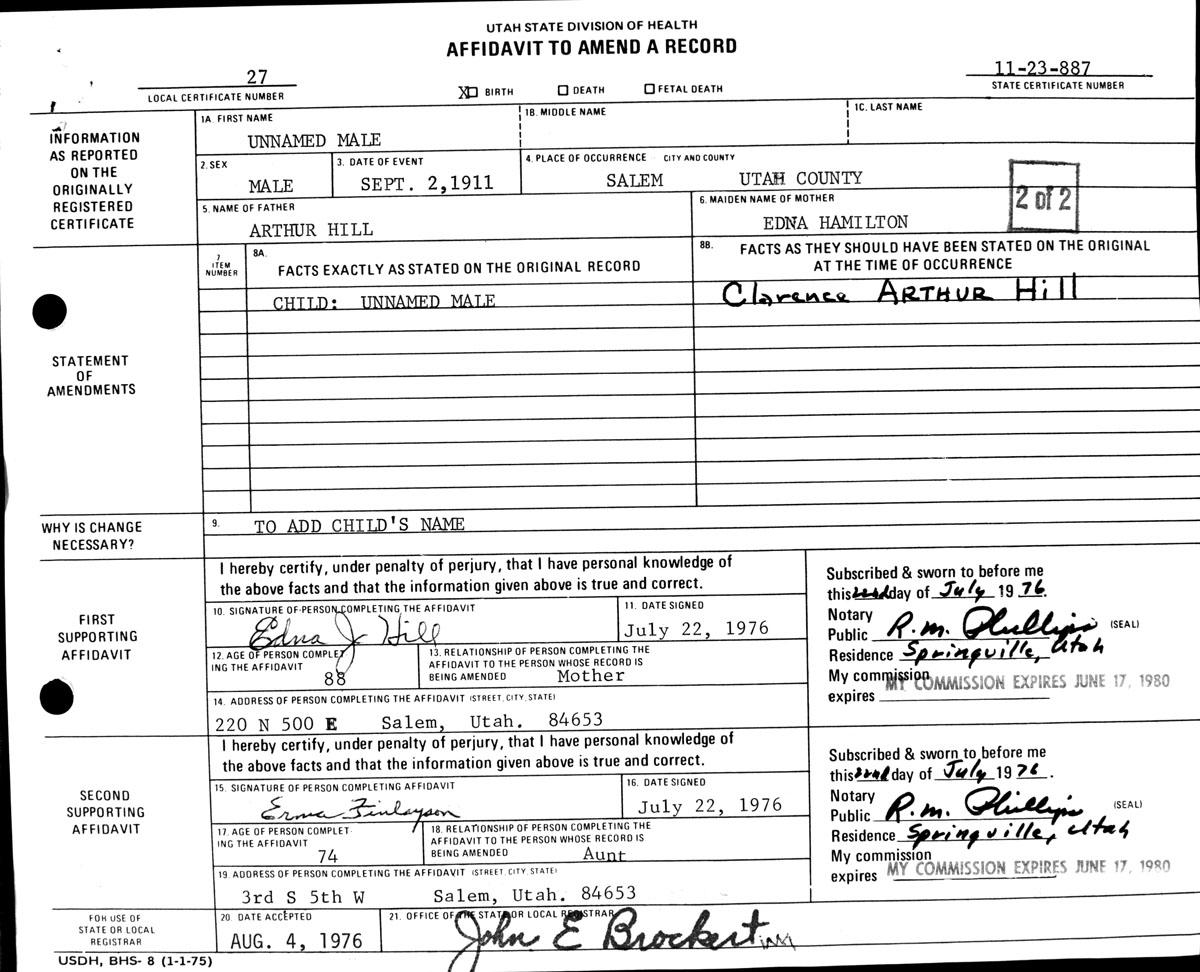 UTAH STATE DIVISION OF HEALTH
AFFIDAVIT TO AMEND A RECORD
27
LOCAL CERTIFICATE NUMBER
X BIRTH DEATH FETAL DEATH
11-23-887
STATE CERTIFICATE NUMBER
INFORMATION
AS REPORTED
ON THE
ORIGINALLY
REGISTERED
CERTIFICATE
1A. FIRST NAME
UNNAMED MALE
1B. MIDDLE NAME
1C. LAST NAME
2. SEX
MALE
3. DATE OF EVENT
SEPT. 2,1911
4. PLACE OF OCCURRENCE CITY AND COUNTY
SALEM UTAH COUNTY
5. NAME OF FATHER
ARTHUR HILL
6. MAIDEN NAME OF MOTHER
EDNA HAMILTON
2 of 2
STATEMENT
OF
AMENDMENTS
7
ITEM
NUMBER
8A.
FACTS EXACTLY AS STATED ON THE ORIGINAL RECORD
8B. FACTS AS THEY SHOULD HAVE BEEN STATED ON THE ORIGINAL
AT THE TIME OF OCCURRENCE
CHILD: UNNAMED MALE
Clarence ARTHUR Hill
WHY IS CHANGE
NECESSARY?
9. TO ADD CHILD'S NAME
FIRST
SUPPORTING
AFFIDAVIT
I hereby certify, under penalty of perjury, that I have personal knowledge of
the above facts and that the information given above is true and correct.
10. SIGNATURE OF PERSON COMPLETING THE AFFIDAVIT
Edna J Hill
11. DATE SIGNED
July 22, 1976
12. AGE OF PERSON COMPLET
ING THE AFFIDAVIT
88
13. RELATIONSHIP OF PERSON COMPLETING THE
AFFIDAVIT TO THE PERSON WHOSE RECORD IS
BEING AMENDED Mother
14. ADDRESS OF PERSON COMPLETING THE AFFIDAVIT (STREET, CITY, STATE)
220 N 500 E Salem, Utah. 84653
Subscribed & sworn to before me
this 22nd day of July 1976.
Notary
Public R.M. Phillips (SEAL)
Residence Springville, Utah
My commission
expires MY COMMISSION EXPIRES JUNE 17, 1980
SECOND
SUPPORTING
AFFIDAVIT
I hereby certify, under penalty of perjury, that I have personal knowledge of
the above facts and that the information given above is true and correct.
15. SIGNATURE OF PERSON COMPLETING AFFIDAVIT
Erma Finlayson
16. DATE SIGNED
July 22, 1976
17. AGE OF PERSON COMPLET
ING THE AFFIDAVIT
74
18. RELATIONSHIP OF PERSON COMPLETING THE
AFFIDAVIT TO THE PERSON WHOSE RECORD IS
BEING AMENDED Aunt
19. ADDRESS OF PERSON COMPLETING THE AFFIDAVIT (STREET, CITY, STATE)
3rd S 5th W Salem, Utah. 84653
Subscribed & sworn to before me
this 22nd day of July 1976.
Notary
Public R.M. Phillips (SEAL)
Residence Springville, Utah
My commission
expires MY COMMISSION EXPIRES JUNE 17, 1980
FOR USE OF
STATE OR LOCAL
REGISTRAR
20. DATE ACCEPTED
AUG. 4, 1976
21. OFFICE OF THE STATE OR LOCAL REGISTRAR
John E Brockert
USDH, BHS- 8 (1-1-75)